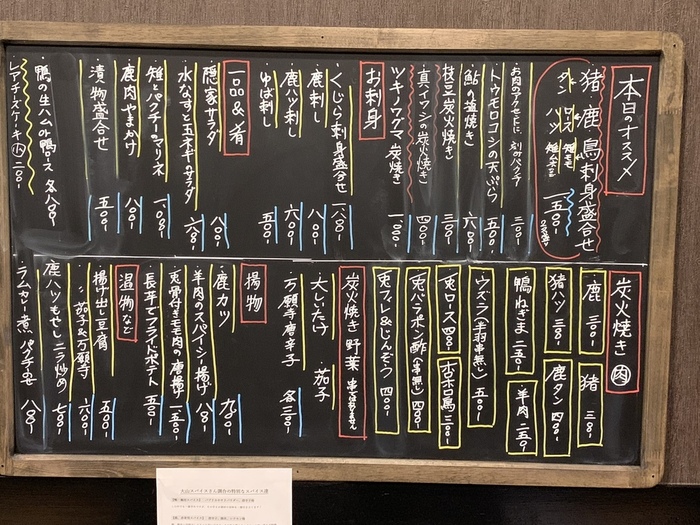 本日のオススメ
猪・鹿・鳥刺身盛合せ
タン ロース
ハツ
一五〇〇
お肉のアクセントに、刻みパクチー 三〇〇
トウモロコシの天ぷら 五〇〇
鮎の塩焼き 六〇〇
枝豆炭火焼き 三〇〇
真イワシの炭火焼き 四〇〇
ツキノワグマ炭焼き 一、〇〇〇
お刺身
くじら刺身盛合せ 一、八〇〇
鹿刺し 八〇〇
鹿ハツ刺し 六〇〇
ゆば刺し 五〇〇
一品&肴
隠家サラダ 八〇〇
水なすと玉ネギのサラダ 六八〇
雉とパクチーのマリネ 一、〇八〇
鹿肉やまかけ 八〇〇
漬物盛合せ 五〇〇
鴨の生ハムみ鴨ロース 各八〇〇
レアチーズケーキ 小 二〇〇
炭火焼き 肉
鹿 三〇〇
猪 三八〇
猪ハツ 三八〇
鹿タン 四〇〇
鴨ねぎま 二五〇
羊肉 二五〇
ウズラ(半羽串無し) 五〇〇
兎ロース 四〇〇
ホロホロ鳥 三〇〇
兎バラポン酢(串無し) 四〇〇
兎フィレ&じんぞう 四〇〇
炭火焼き 野菜 串ではありません
大しいたけ・茄子
万願寺唐辛子 各三〇〇
揚物
鹿カツ 九〇〇
羊肉のスパイシー揚げ 八〇〇
兎骨付きモモ肉の唐揚げ 一、五〇〇
長芋でフライドポテト 五〇〇
温物など
揚げ出し豆腐 五〇〇
〃 茄子&万願寺 六〇〇
鹿ハツもやしニラ炒め 七〇〇
ラムカレー煮 パクチーのせ 八〇〇